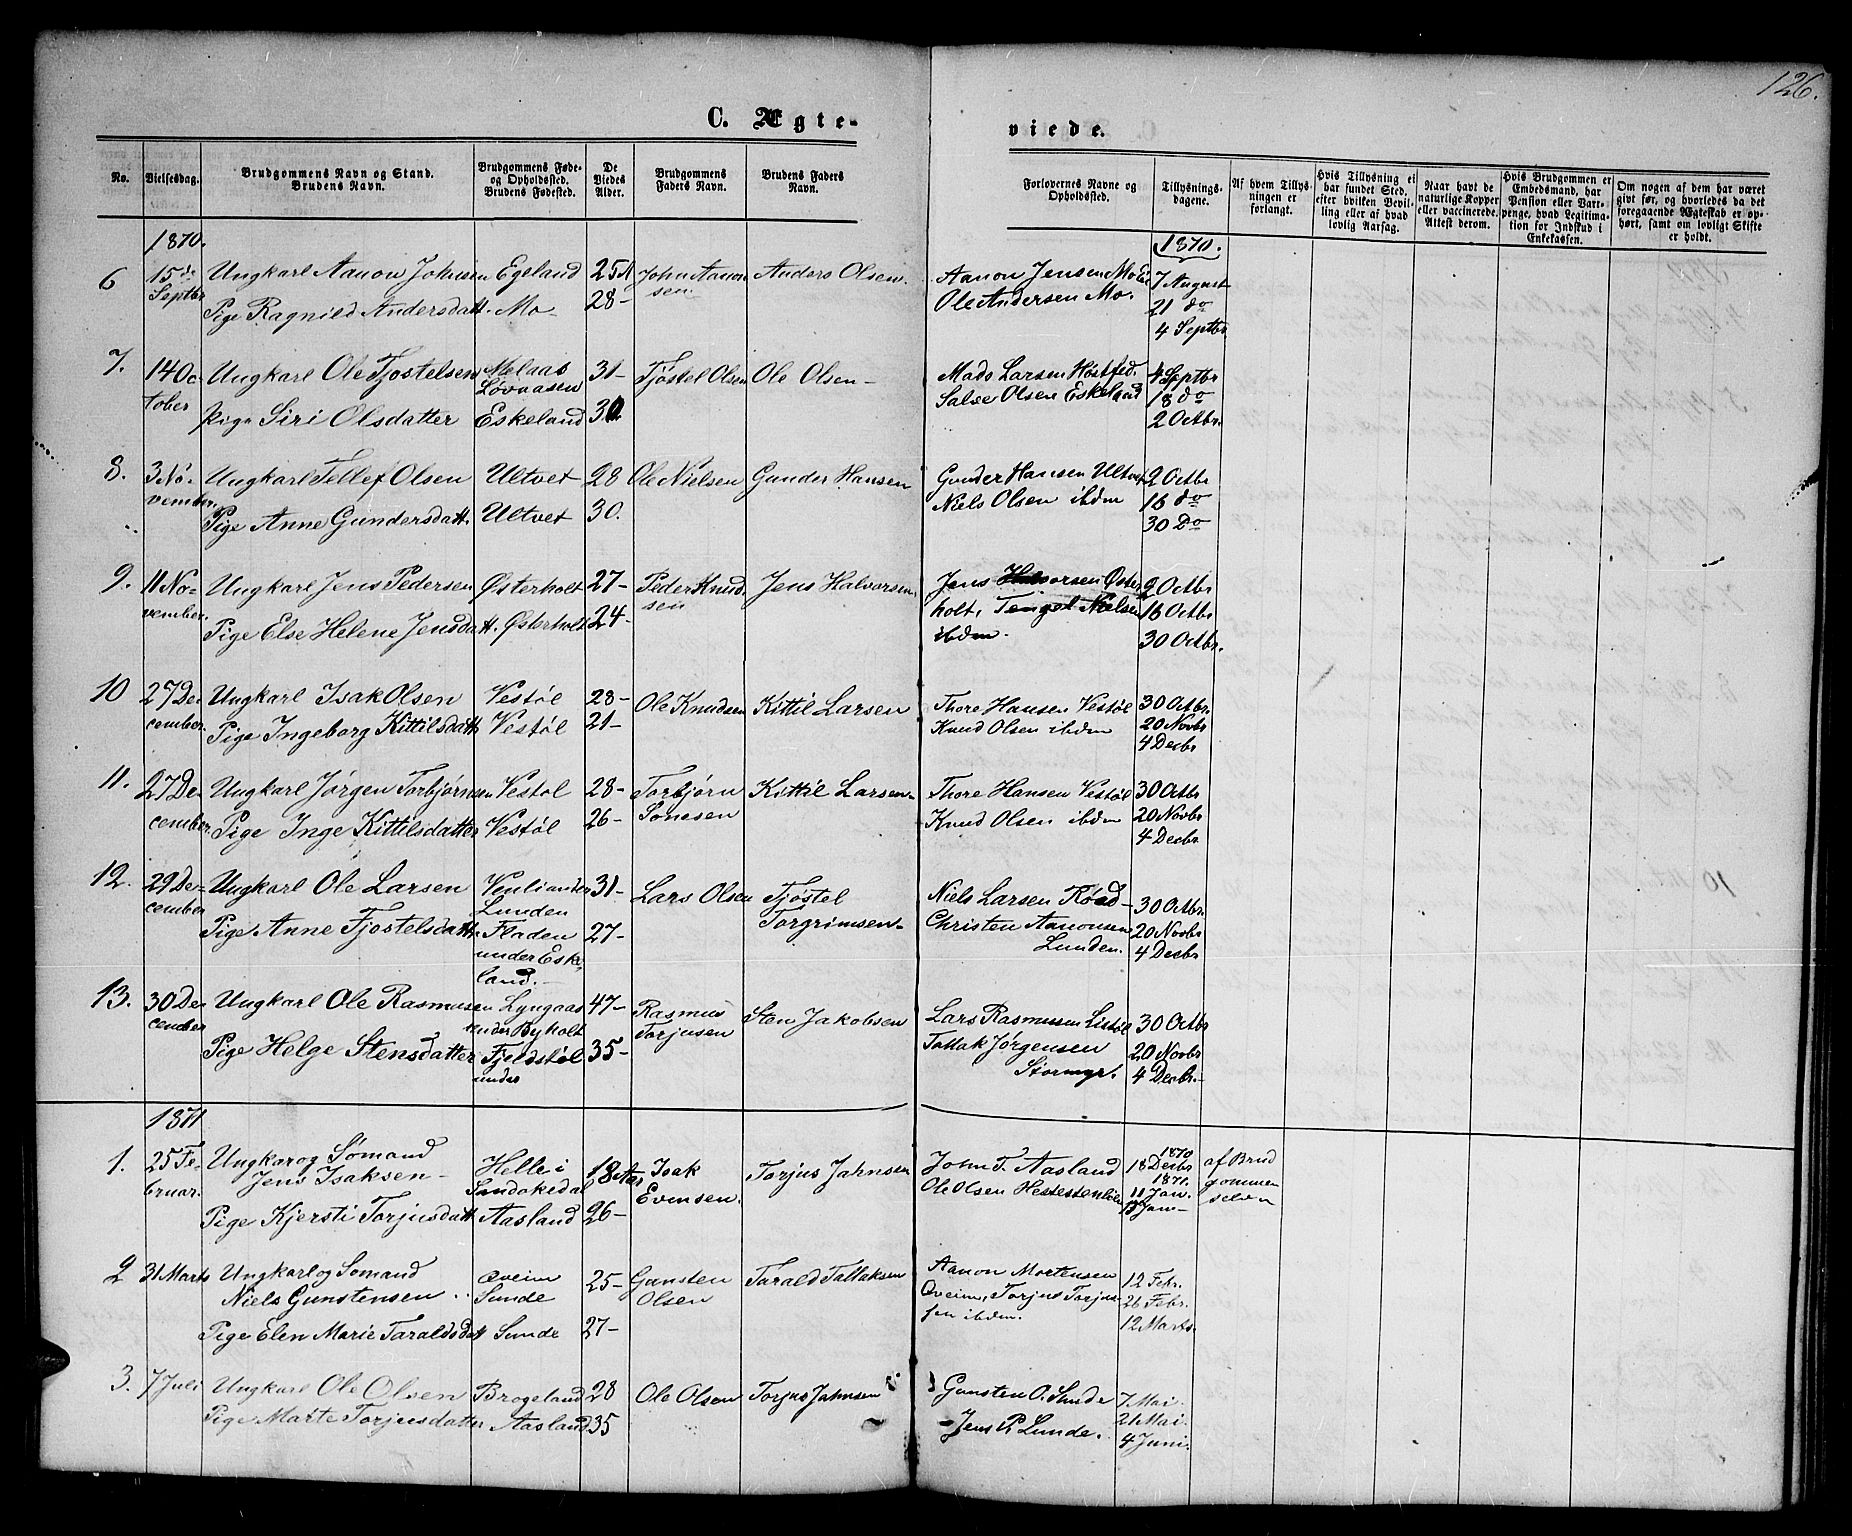 126.
C. Ægte-
viede.
No.
Vielsesdag.
Brudgommens Navn og Stand.
Brudens Navn.
Brudgommens Føde-
og Opholdssted.
Brudens Fødested.
De
Viedes
Alder.
Brudgommens
Faders Navn.
Brudens Faders
Navn.
Forlovernes Navne og
Opholdssted.
Tillysnings-
dagene.
Af hvem Tillys-
ningen er
forlangt.
Hvis Tillysning ei
har fundet Sted,
efter hvilken Bevil-
ling eller af hvad
lovlig Aarsag.
Naar havt de
naturlige Kopper
eller vaccinerede.
Attest derom.
Hvis Brudgommen er
Embedsmand, har
Pension eller Vart-
penge, hvad Legitima-
tion for Indskud i
Enkekassen.
Om nogen af dem har været
givt før, og hvorledes da det
foregaaende Ægteskab er op-
hørt, samt om lovligt Skifte
er holdt.
1870.
1870.
6 15de Ungkarl Aanon Johnsen Egeland 25 John Aanon Anders Olsen. Aanon Jensen Mo 7 August
Septbr sen. Ole Andersen Mo. 21 do
Pige Ragnild Andersdatt. Mo 28- 4 Septbr
7. 14 Oc- Ungkarl Ole Tjostelsen Melaas 31- Tjøstel Olsen Ole Olsen- Mads Larsen 4 Septbr
Løvaasen Salve Olsen Eskeland 18 do
tober pige Siri Olsdatter Eskeland 30 2 Octbr.
8. 3 No- Ungkarl Tellef Olsen Ultvet 28 Ole Nielsen Gunder Hansen Gunder Hansen Ultvet 2 Octbr
vember Niels Olsen ibdm 16 do
Pige Anne Gundersdatt. Ultvet 30. 30 Do
9. 11 No- Ungkarl Jens Pedersen Østerholt 27- Peder Knud- Jens Halvorsen Jens Halvorsen Øster- 2 Octbr
vember. sen holt, Tengel Nielsen 16 Octbr
Pige Else Helene Jensdatt. Østerholt 24- ibdm. 30 Octbr.
10 27 De- Ungkarl Isak Olsen Vestøl 28- Ole Knudsen Kittil Larsen Thore Hansen Vestøl 30 Octbr.
cember. Pige Ingeborg Kittilsdatt Vestøl 21- Knud Olsen ibdm 20 Novbr
4 Decbr
11. 27 De- Ungkarl Jørgen Torbjørnsen Vestøl 28- Torbjørn Kittil Larsen- Thore Hansen Vestøl 30 Octbr
cember. Pige Inge Kittilsdatter Vestøl 26- Sonesen Knud Olsen ibdm 20 Novbr
4 Decbr
12. 29 De- Ungkarl Ole Larsen Venliander 31- Lars Olsen Tjøstel Niels Larsen 30 Octbr.
cember Lunden Torgrimsen- Christen Aanonsen 20 Novbr
Pige Anne Tjostelsdatt. Fladen 27- Lunden. 4 Decbr
under Eske-
land.-
13. 30 De- Ungkarl Ole Rasmusen Lyngaas 47- Rasmus Sten Jakobsen Lars Rasmusen Listøl 30 Octbr
cember under Byholt Torjusen Tallak Jørgensen 20 Novbr
Pige Helge Stensdatter Fjeldstøl 35- Stormyr. 4 Decbr.-
under
1871
1. 25 Fe- Ungkar og Sømand Helle i 18 Aar Isak Torjus Jahnsen John T. Aasland 1870 18 Decbr af Brud
bruar. Jens Isaksen- Sandøkedal Evensen. Ole Olsen 1871. 11 Jan. gommen
Pige Kjersti Torjusdatt Aasland 26- Jan- selv
2 31 Marts Ungkarl og Sømand Øveim 25- Gunsten Tarald Tallaksen Aanon Mortensen 12 Febr.
Niels Gunstensen Sunde Olsen Øveim, Torjus Torjus- 26 Febr.
Pige Elen Marie Taraldsdatt Sunde 27- sen ibdm. 12 Marts.
3. 7 Juli Ungkarl Ole Olsen Brogeland 28 Ole Olsen Torjus Jahnsen Gunsten O. Sunde 7 Mai.
Pige Marte Torjusdatter Aasland 35 Jens P. Lunde. 21 Mai.
4 Juni.